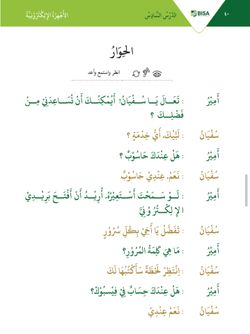 الأَجْهِزَةُ الإِلِكْتُرُونِيَّةُ
الدَّرْسُ السَّادِسُ
BISA
١٠
الحِوَارُ
انظر واستمع وأعد
أَمِيْرُ : تَعَالَ يَا سُفْيَانُ. أَيُمْكِنُكَ أَنْ تُسَاعِدَنِيْ مِنْ
فَضْلِكَ ؟
سُفْيَانُ : لَبَّيْكَ، أَيُّ خِدْمَةٍ ؟
أَمِيْرُ : هَلْ عِنْدَكَ حَاسُوْبٌ ؟
سُفْيَانُ : نَعَمْ، عِنْدِيْ حَاسُوْبٌ
أَمِيْرُ : لَوْ سَمَحْتَ أَسْتَعِيْرُهُ. أُرِيْدُ أَنْ أَفْتَحَ بَرِيْدِيْ
الإِلِكْتُرُوْنِيَّ
سُفْيَانُ : تَفَضَّلْ يَا أَخِيْ بِكُلِّ سُرُوْرٍ
أَمِيْرُ : مَا هِيَ كَلِمَةُ المُرُوْرِ؟
سُفْيَانُ : اِنْتَظِرْ لَحْظَةً سَأَكْتُبُهَا لَكَ
أَمِيْرُ : هَلْ عِنْدَكَ حِسَابٌ فِيْ فَيْسْبُوْكْ؟
سُفْيَانُ : نَعَمْ عِنْدِيْ